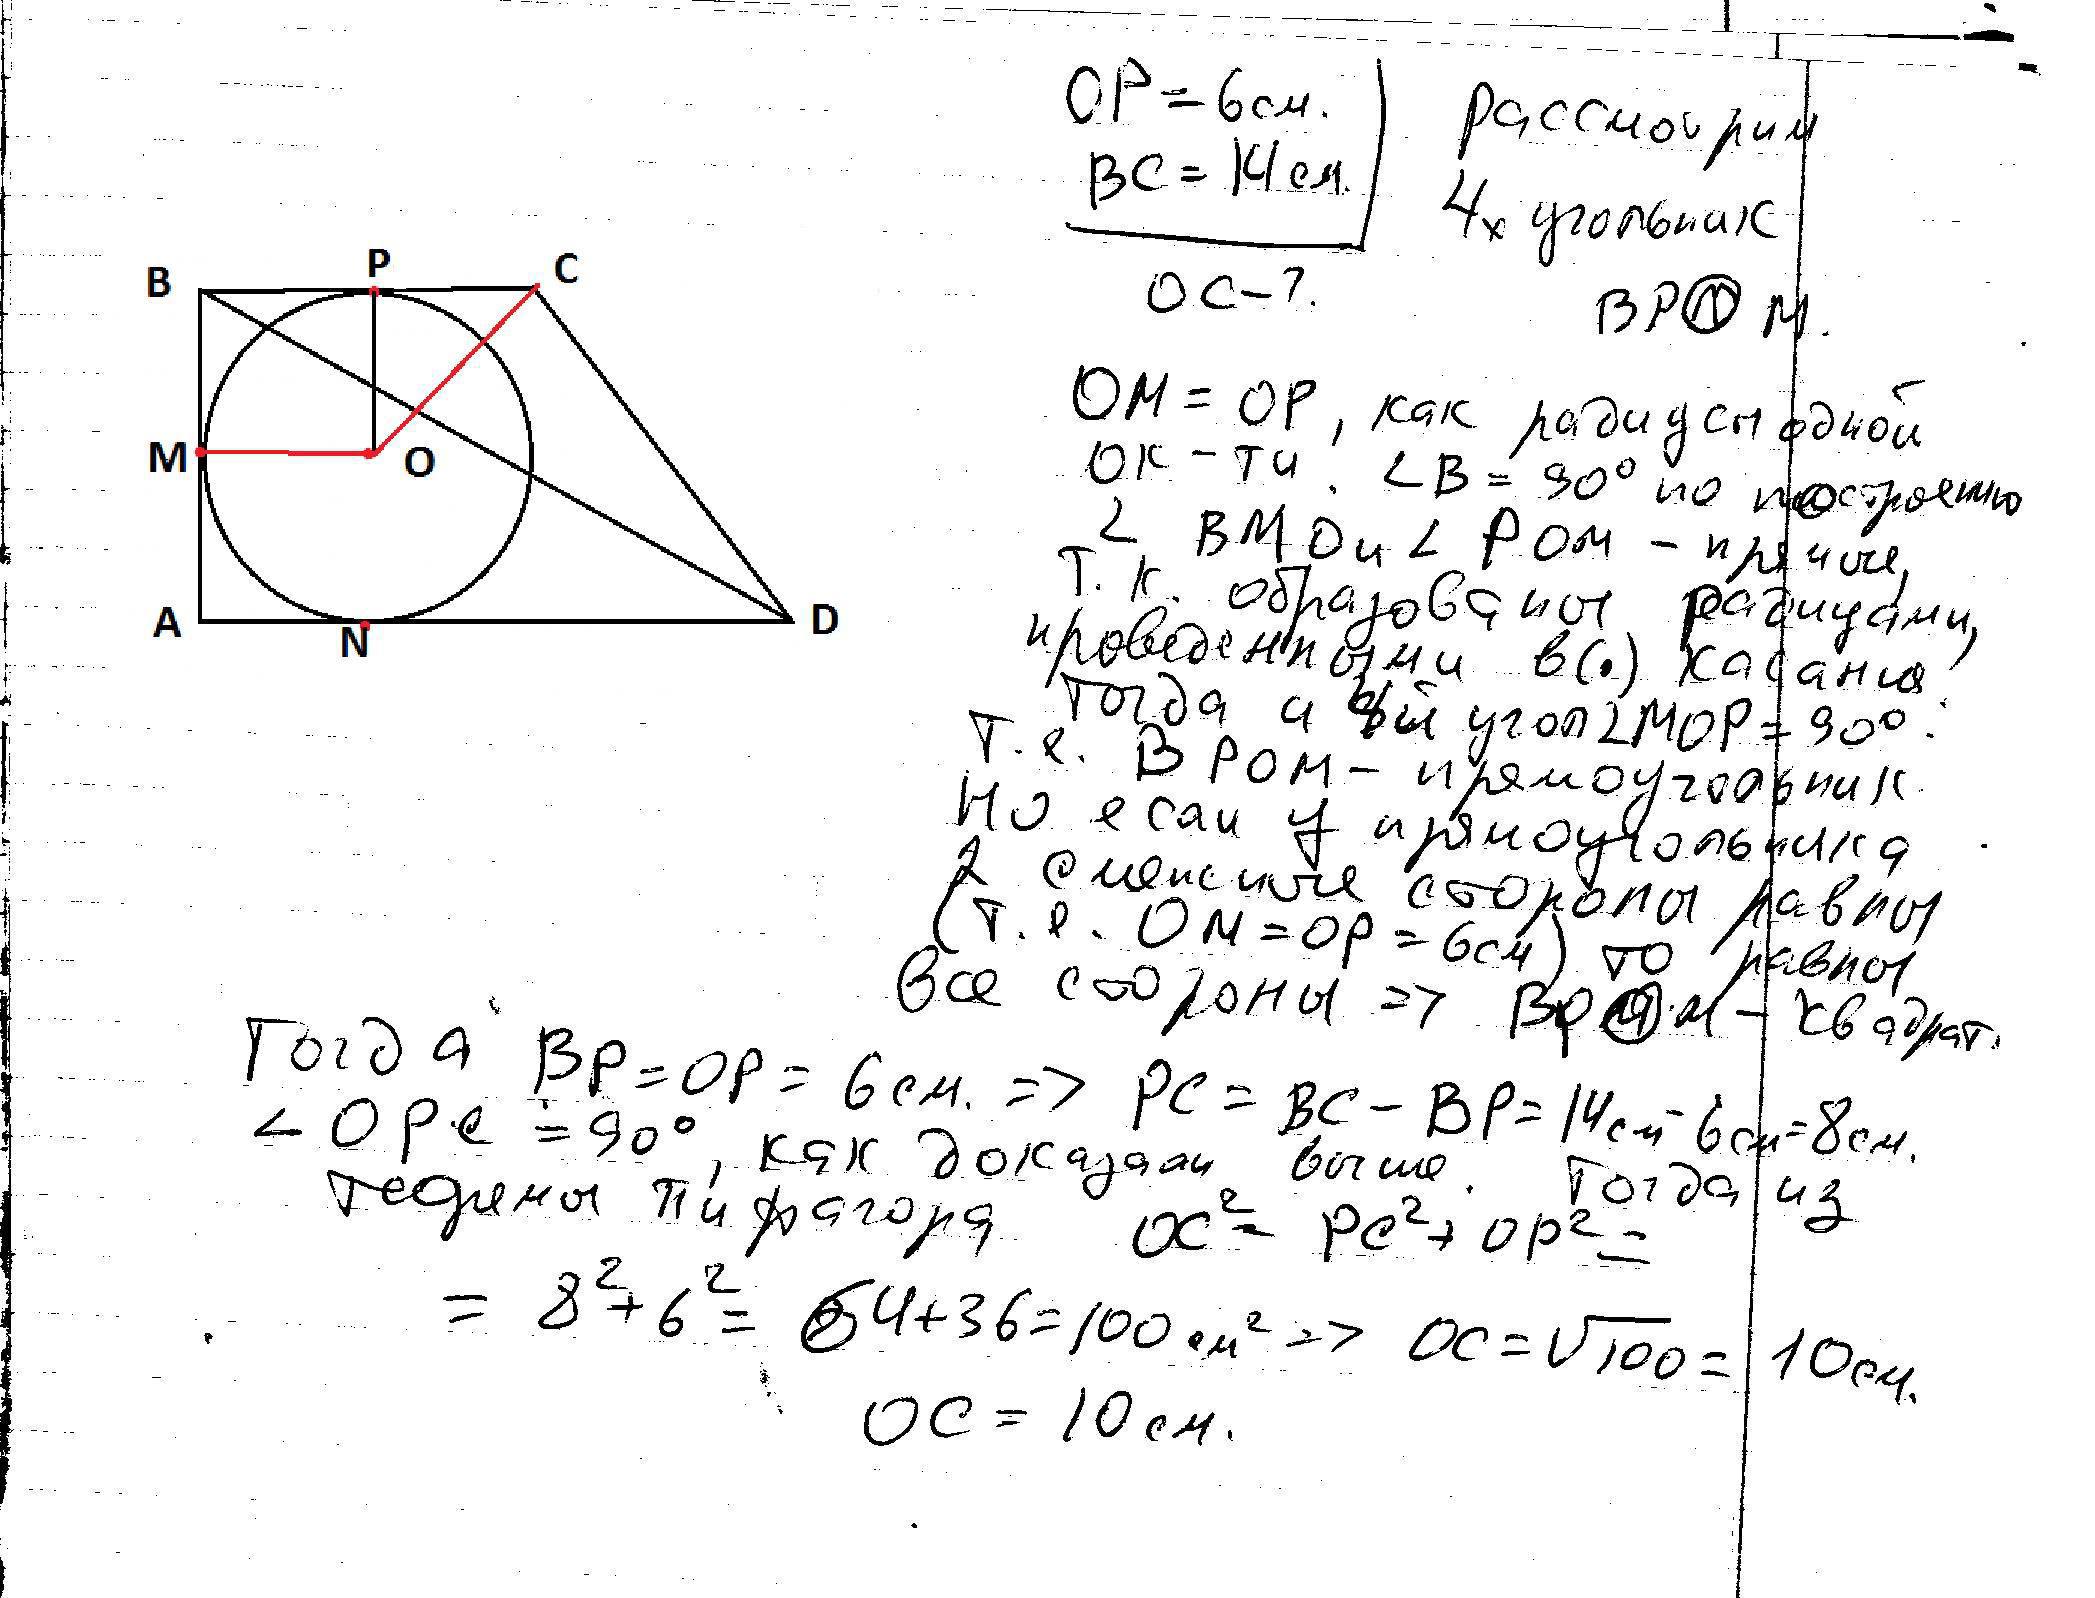 B
P
C
M
O
A
N
D
OP = 6 см.
BC = 14 см.
OC - ?.
Рассмотрим
4х угольник
BPOM.
OM = OP, как радиусы одной
ок-ти. ∠B = 90° по построению
∠ BMO и ∠ POM - прямые,
т.к. образованы радиусами,
проведенными в (.) касания.
Тогда и 4й угол ∠MOP = 90°.
Т.е. BPOM - прямоугольник
Но если у прямоугольника
2 смежные стороны равны
(т.е. OM = OP = 6 см) то равны
все стороны => BPOM - квадрат.
Тогда BP = OP = 6 см. => PC = BC - BP = 14 см - 6 см = 8 см.
∠ OPC = 90°, как доказали выше. Тогда из
теоремы Пифагора OC² = PC² + OP² =
= 8² + 6² = 64 + 36 = 100 см² => OC = √100 = 10 см.
OC = 10 см.